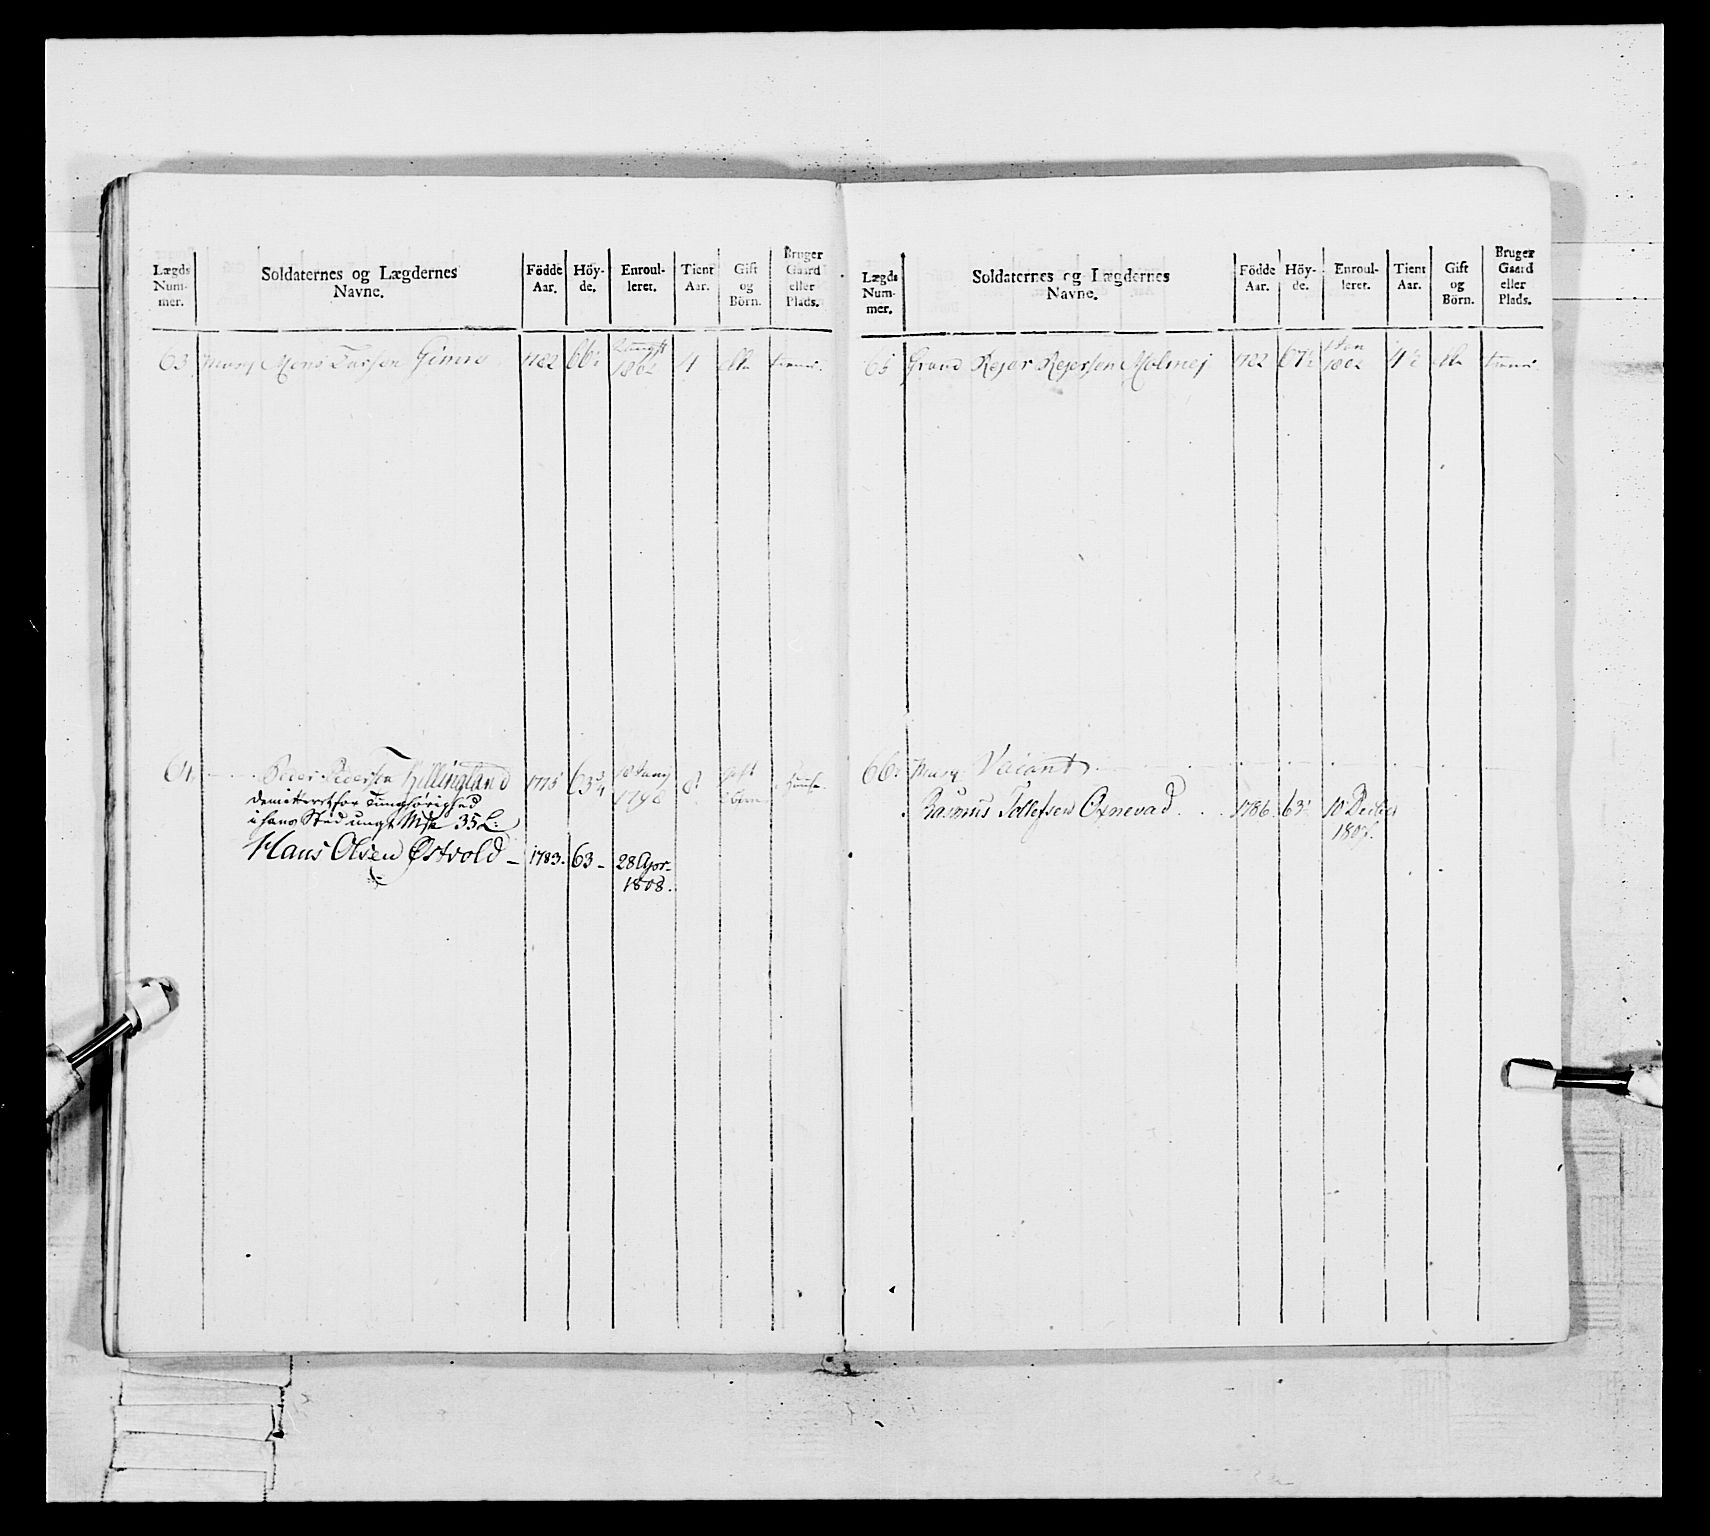 Lægds Num- mer.
Soldaternes og Lægdernes Navne.
Födde Aar.
Höy- de.
Enroul- leret.
Tient Aar.
Gift og Börn.
Bruger Gaard eller Plads.
63 Musq Mons Larsen Gimre 1782 66½ 1802 4
64 Peder Pedersen Killingland 1775 63¾ 1798 8 gift
Demitteret for Tunghörighed
i hans Sted ungt Mske 35 L:
Hans Olsen Østvold - 1783. 63 - 28 Apr.
1808.
Lægds Num- mer.
Soldaternes og Lægdernes Navne.
Födde Aar.
Höy- de.
Enroul- leret.
Tient Aar.
Gift og Börn.
Bruger Gaard eller Plads.
65 Grand Rejer Rejersen Molmej 1782 67½ 1802 4½
66 Musq Vacant
Rasmus Tollefsen Oxnevad 1786 63 10 Decbr
1807.